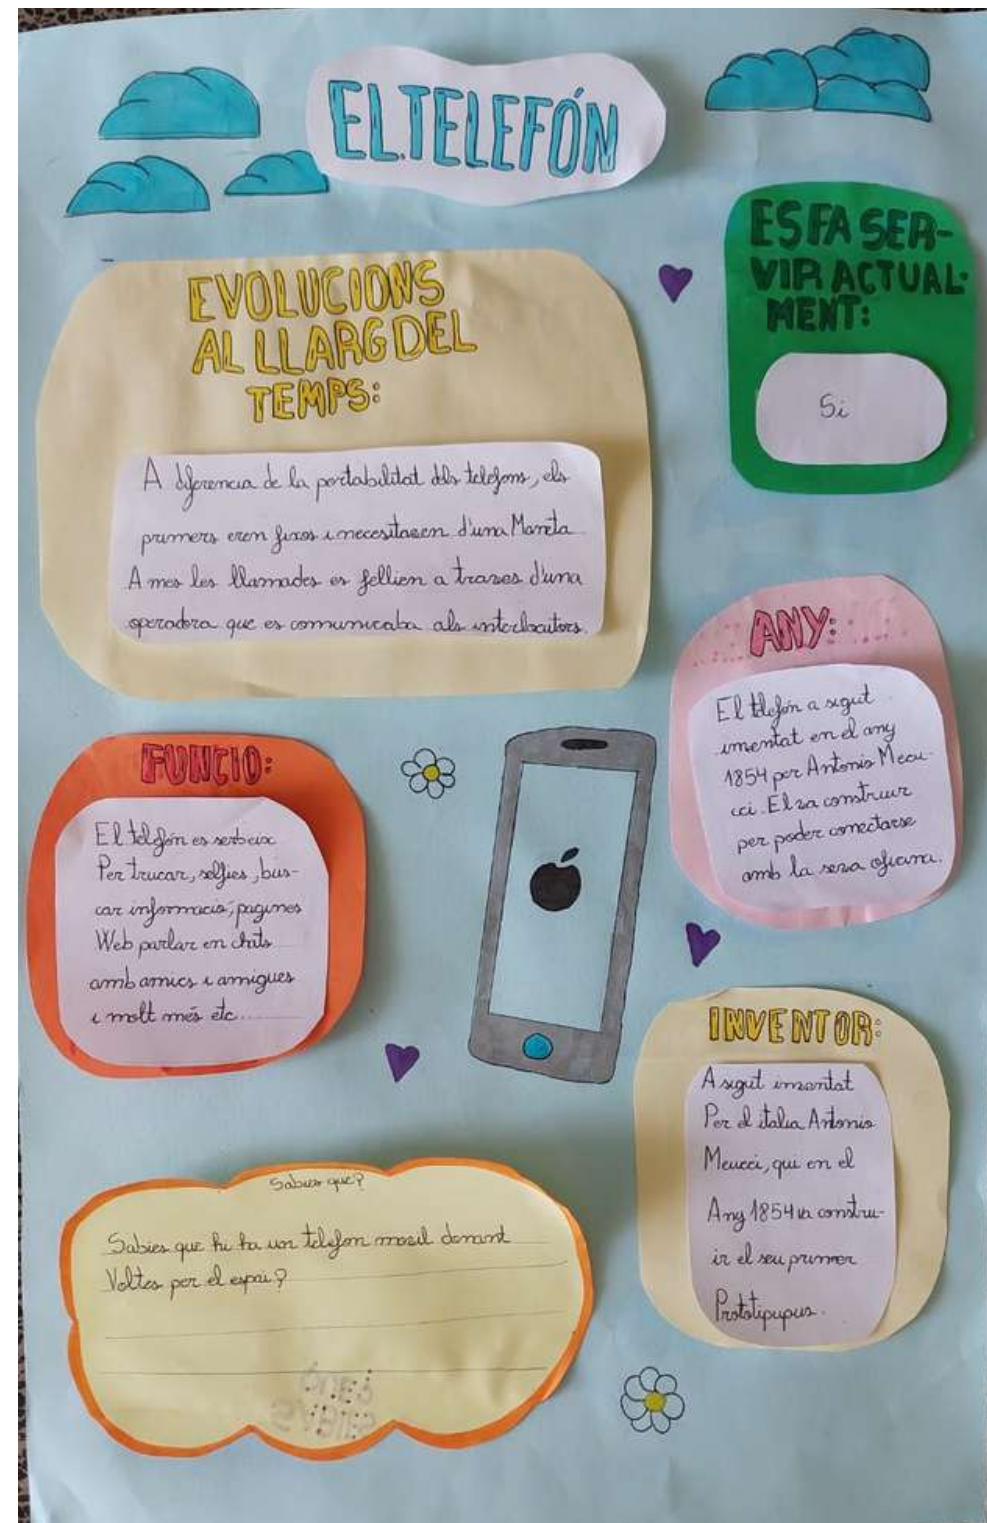 EL TELEFÓN
ES FA SER-
VIR ACTUAL-
MENT:
Si
EVOLUCIONS
AL LLARG DEL
TEMPS:
A diferencia de la portabilitat dels telefons, els
primers eren fixos i necesitaven d'una Maneta
A mes les llamades es fellien a traves d'una
operadora que es comunicaba als interlocutors.
ANY:
El telefón a sigut
inventat en el any
1854 per Antonio Meeu-
cci. El va construir
per poder conectarse
amb la seva oficina.
FUNCIO:
El telefón es serbeix
Per trucar, selfies, bus-
car informació, pagines
Web parlar en chats
amb amics i amigues
i molt més etc
INVENTOR:
A sigut inventat
Per el italia Antonio
Meucci, qui en el
Any 1854 va constru-
ir el seu primer
Prototipupus.
Sabies que?
Sabies que hi ha un telefon movil donant
Voltes per el espai?